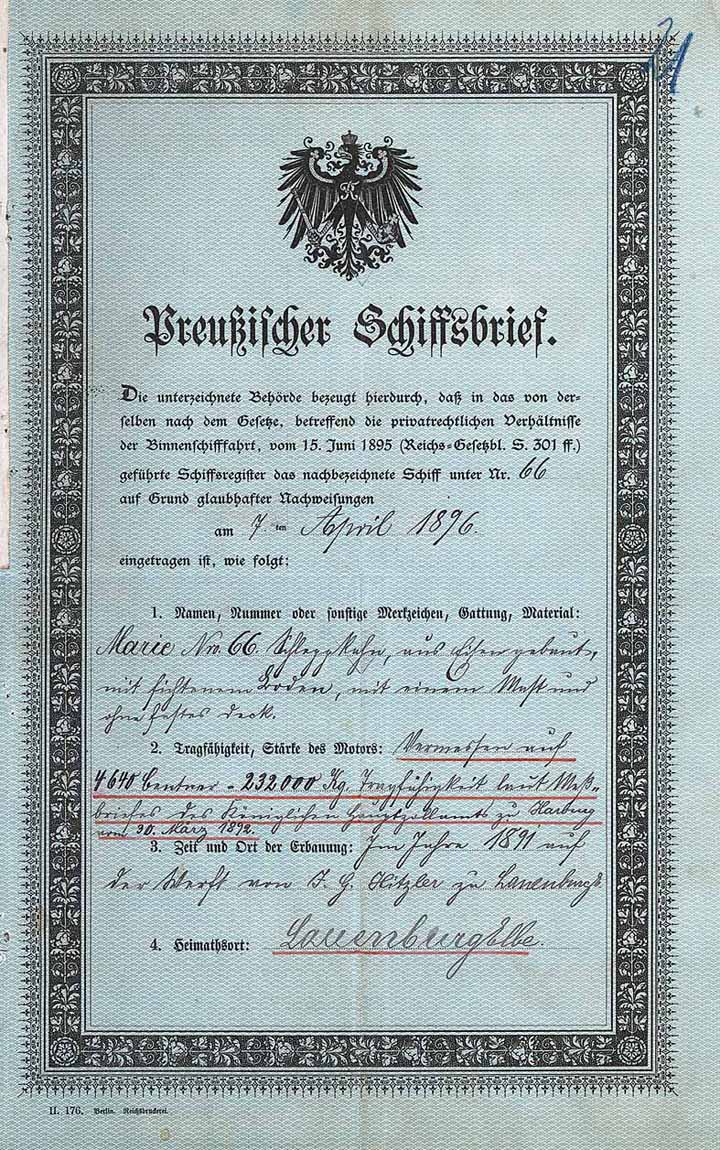 21
Preußischer Schiffsbrief.
Die unterzeichnete Behörde bezeugt hierdurch, daß in das von der-
selben nach dem Gesetze, betreffend die privatrechtlichen Verhältnisse
der Binnenschifffahrt, vom 15. Juni 1895 (Reichs-Gesetzbl. S. 301 ff.)
geführte Schiffsregister das nachbezeichnete Schiff unter Nr. 66
auf Grund glaubhafter Nachweisungen
am 7 ten April 1896.
eingetragen ist, wie folgt:
1. Namen, Nummer oder sonstige Merkzeichen, Gattung, Material:
Marie Nro. 66. Schleppkahn, aus Eisen gebaut,
mit fichtenem Boden, mit einem Mast und
ohne festes Deck.
2. Tragfähigkeit, Stärke des Motors: Vermessen auf
4640 Centner = 232000 Kg. Tragfähigkeit laut Meß-
briefes des Königlichen Hauptzollamts zu Harburg
vom 30. März 1892.
3. Zeit und Ort der Erbauung: Im Jahre 1891 auf
der Werft von J. G. Hitzler zu Lauenburg
4. Heimathsort: Lauenburg Elbe.
II. 176. Berlin. Reichsdruckerei.